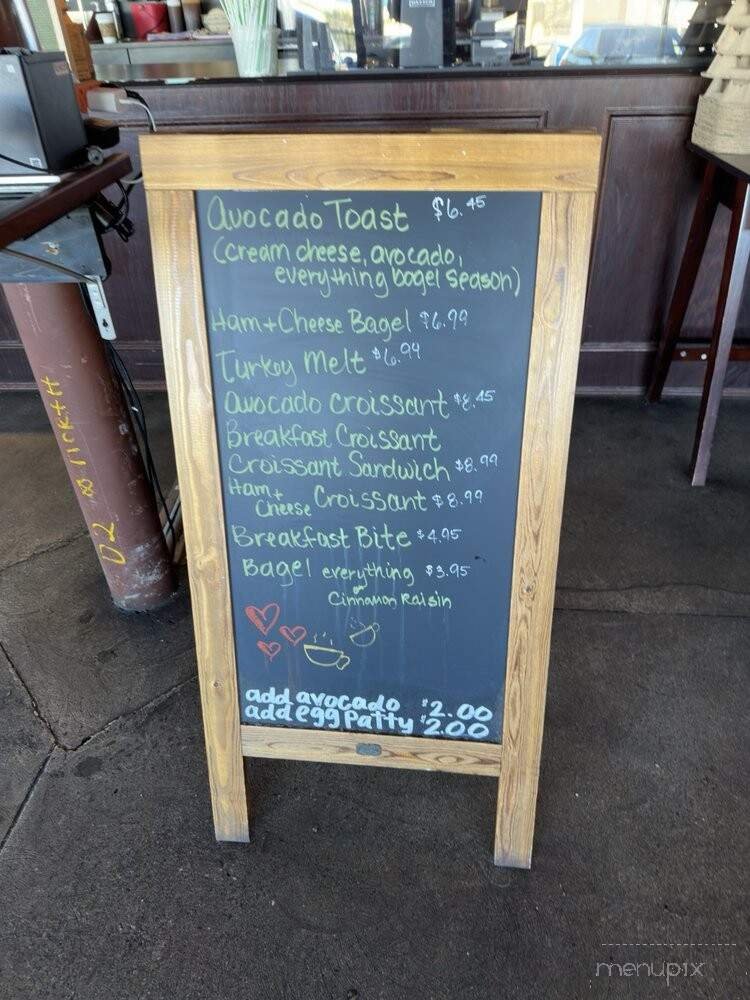 Avocado Toast $6.45
(cream cheese, avocado,
everything bagel season)
Ham + Cheese Bagel $6.99
Turkey Melt $6.94
Avocado croissant $8.45
Breakfast Croissant
Croissant Sandwich $8.99
Ham + Cheese Croissant $8.99
Breakfast Bite $4.95
Bagel everything $3.95
or
Cinnamon Raisin
add avocado $2.00
add egg Patty $2.00
D2
menupix